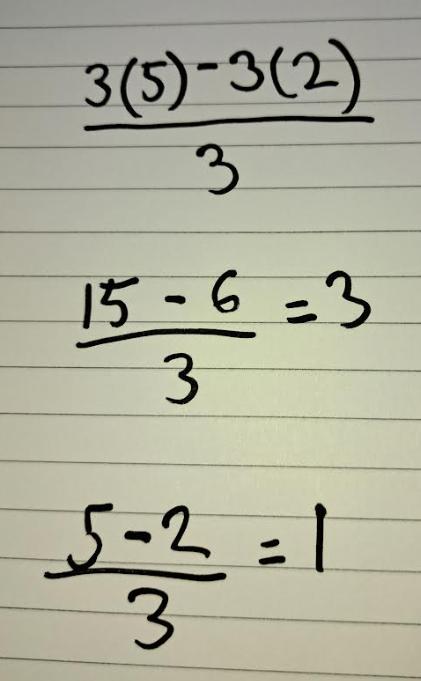 3(5)-3(2)
3
15 - 6 = 3
3
5-2 = 1
3